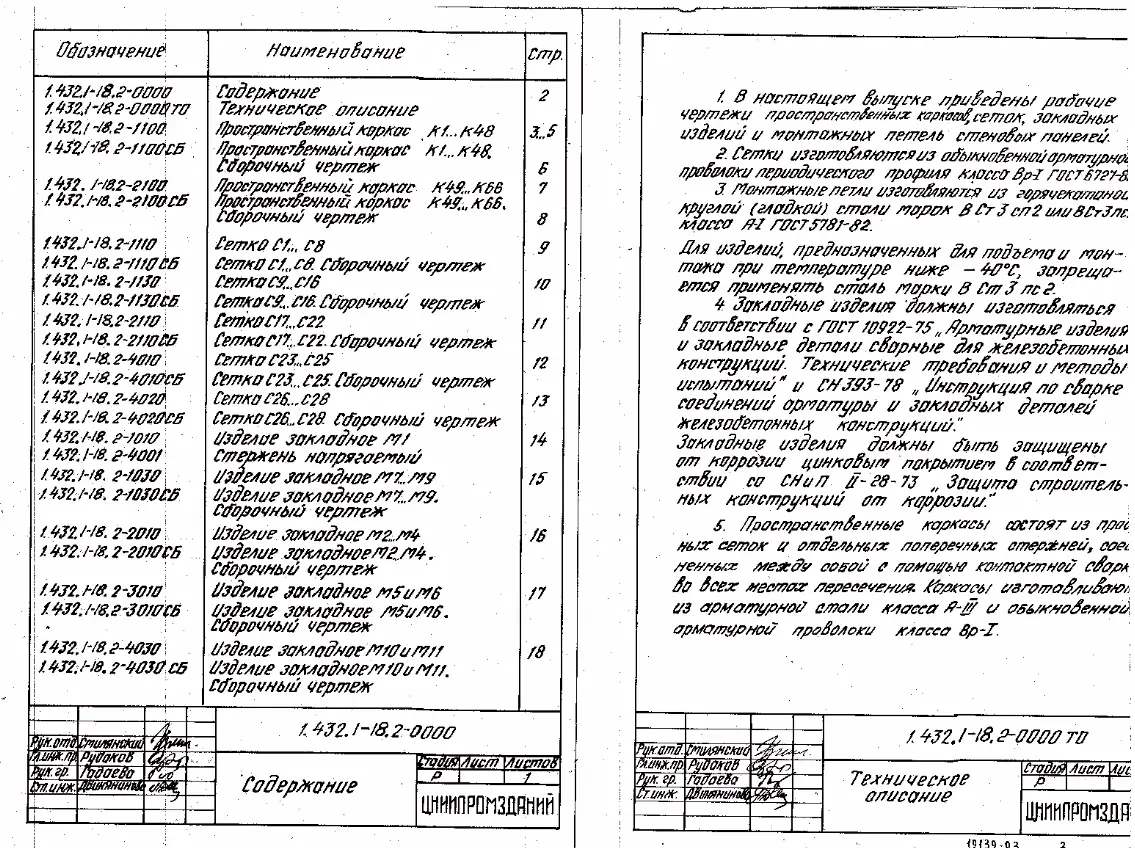 Обозначение Наименование Стр.
1.432.1-18.2-0000 Содержание 2
1.432.1-18.2-0000ТО Техническое описание
1.432.1-18.2-1100 Пространственный каркас К1...К48 3...5
1.432.1-18.2-1100СБ Пространственный каркас К1...К48.
Сборочный чертеж 6
1.432.1-18.2-2100 Пространственный каркас К49...К66 7
1.432.1-18.2-2100СБ Пространственный каркас К49...К66.
Сборочный чертеж 8
1.432.1-18.2-1110 Сетка С1... С8 9
1.432.1-18.2-1110СБ Сетка С1...С8. Сборочный чертеж
1.432.1-18.2-1130 Сетка С9...С16 10
1.432.1-18.2-1130СБ Сетка С9...С16. Сборочный чертеж
1.432.1-18.2-2110 Сетка С17...С22 11
1.432.1-18.2-2110СБ Сетка С17...С22. Сборочный чертеж
1.432.1-18.2-4010 Сетка С23...С25 12
1.432.1-18.2-4010СБ Сетка С23...С25. Сборочный чертеж
1.432.1-18.2-4020 Сетка С26...С28 13
1.432.1-18.2-4020СБ Сетка С26...С28. Сборочный чертеж
1.432.1-18.2-1010 Изделие закладное М1 14
1.432.1-18.2-4001 Стержень напрягаемый
1.432.1-18.2-1030 Изделие закладное М7...М9 15
1.432.1-18.2-1030СБ Изделие закладное М7...М9.
Сборочный чертеж
1.432.1-18.2-2010 Изделие закладное М2...М4 16
1.432.1-18.2-2010СБ Изделие закладное М2...М4.
Сборочный чертеж
1.432.1-18.2-3010 Изделие закладное М5иМ6 17
1.432.1-18.2-3010СБ Изделие закладное М5иМ6.
Сборочный чертеж
1.432.1-18.2-4030 Изделие закладное М10иМ11 18
1.432.1-18.2-4030СБ Изделие закладное М10иМ11.
Сборочный чертеж
1.432.1-18.2-0000
Рук.отд. Стилянский
Гл.инж.пр. Рудаков
Рук.гр. Годаева
Ст.инж. Двинянинова
Содержание
Стадия Лист Листов
Р 1
ЦНИИПРОМЗДАНИЙ
1. В настоящем выпуске приведены рабочие
чертежи пространственных каркасов, сеток, закладных
изделий и монтажных петель стеновых панелей.
2. Сетки изготовляются из обыкновенной арматурной
проволоки периодического профиля класса Вр-I ГОСТ 6727-8
3. Монтажные петли изготовляются из горячекатаной
круглой (гладкой) стали марок ВСт3сп2 или ВСт3пс
класса А-I ГОСТ 5781-82.
Для изделий, предназначенных для подъема и мон-
тажа при температуре ниже -40°С, запреща-
ется применять сталь марки ВСт3пс2.
4. Закладные изделия должны изготовляться
в соответствии с ГОСТ 10922-75 „Арматурные изделия
и закладные детали сварные для железобетонных
конструкций. Технические требования и методы
испытаний" и СН393-78 „Инструкция по сварке
соединений арматуры и закладных деталей
железобетонных конструкций."
Закладные изделия должны быть защищены
от коррозии цинковым покрытием в соответ-
ствии со СНиП II-28-73 „Защита строитель-
ных конструкций от коррозии."
5. Пространственные каркасы состоят из прод
ных сеток и отдельных поперечных стержней, соед
ненных между собой с помощью контактной сварк
во всех местах пересечения. Каркасы изготавливают
из арматурной стали класса А-III и обыкновенной
арматурной проволоки класса Вр-I.
1.432.1-18.2-0000 ТО
Рук.отд. Стилянский
Гл.инж.пр. Рудаков
Рук.гр. Годаева
Ст.инж. Двинянинова
Техническое
описание
Стадия Лист Лис
Р
ЦНИИПРОМЗДА
19139-03 3